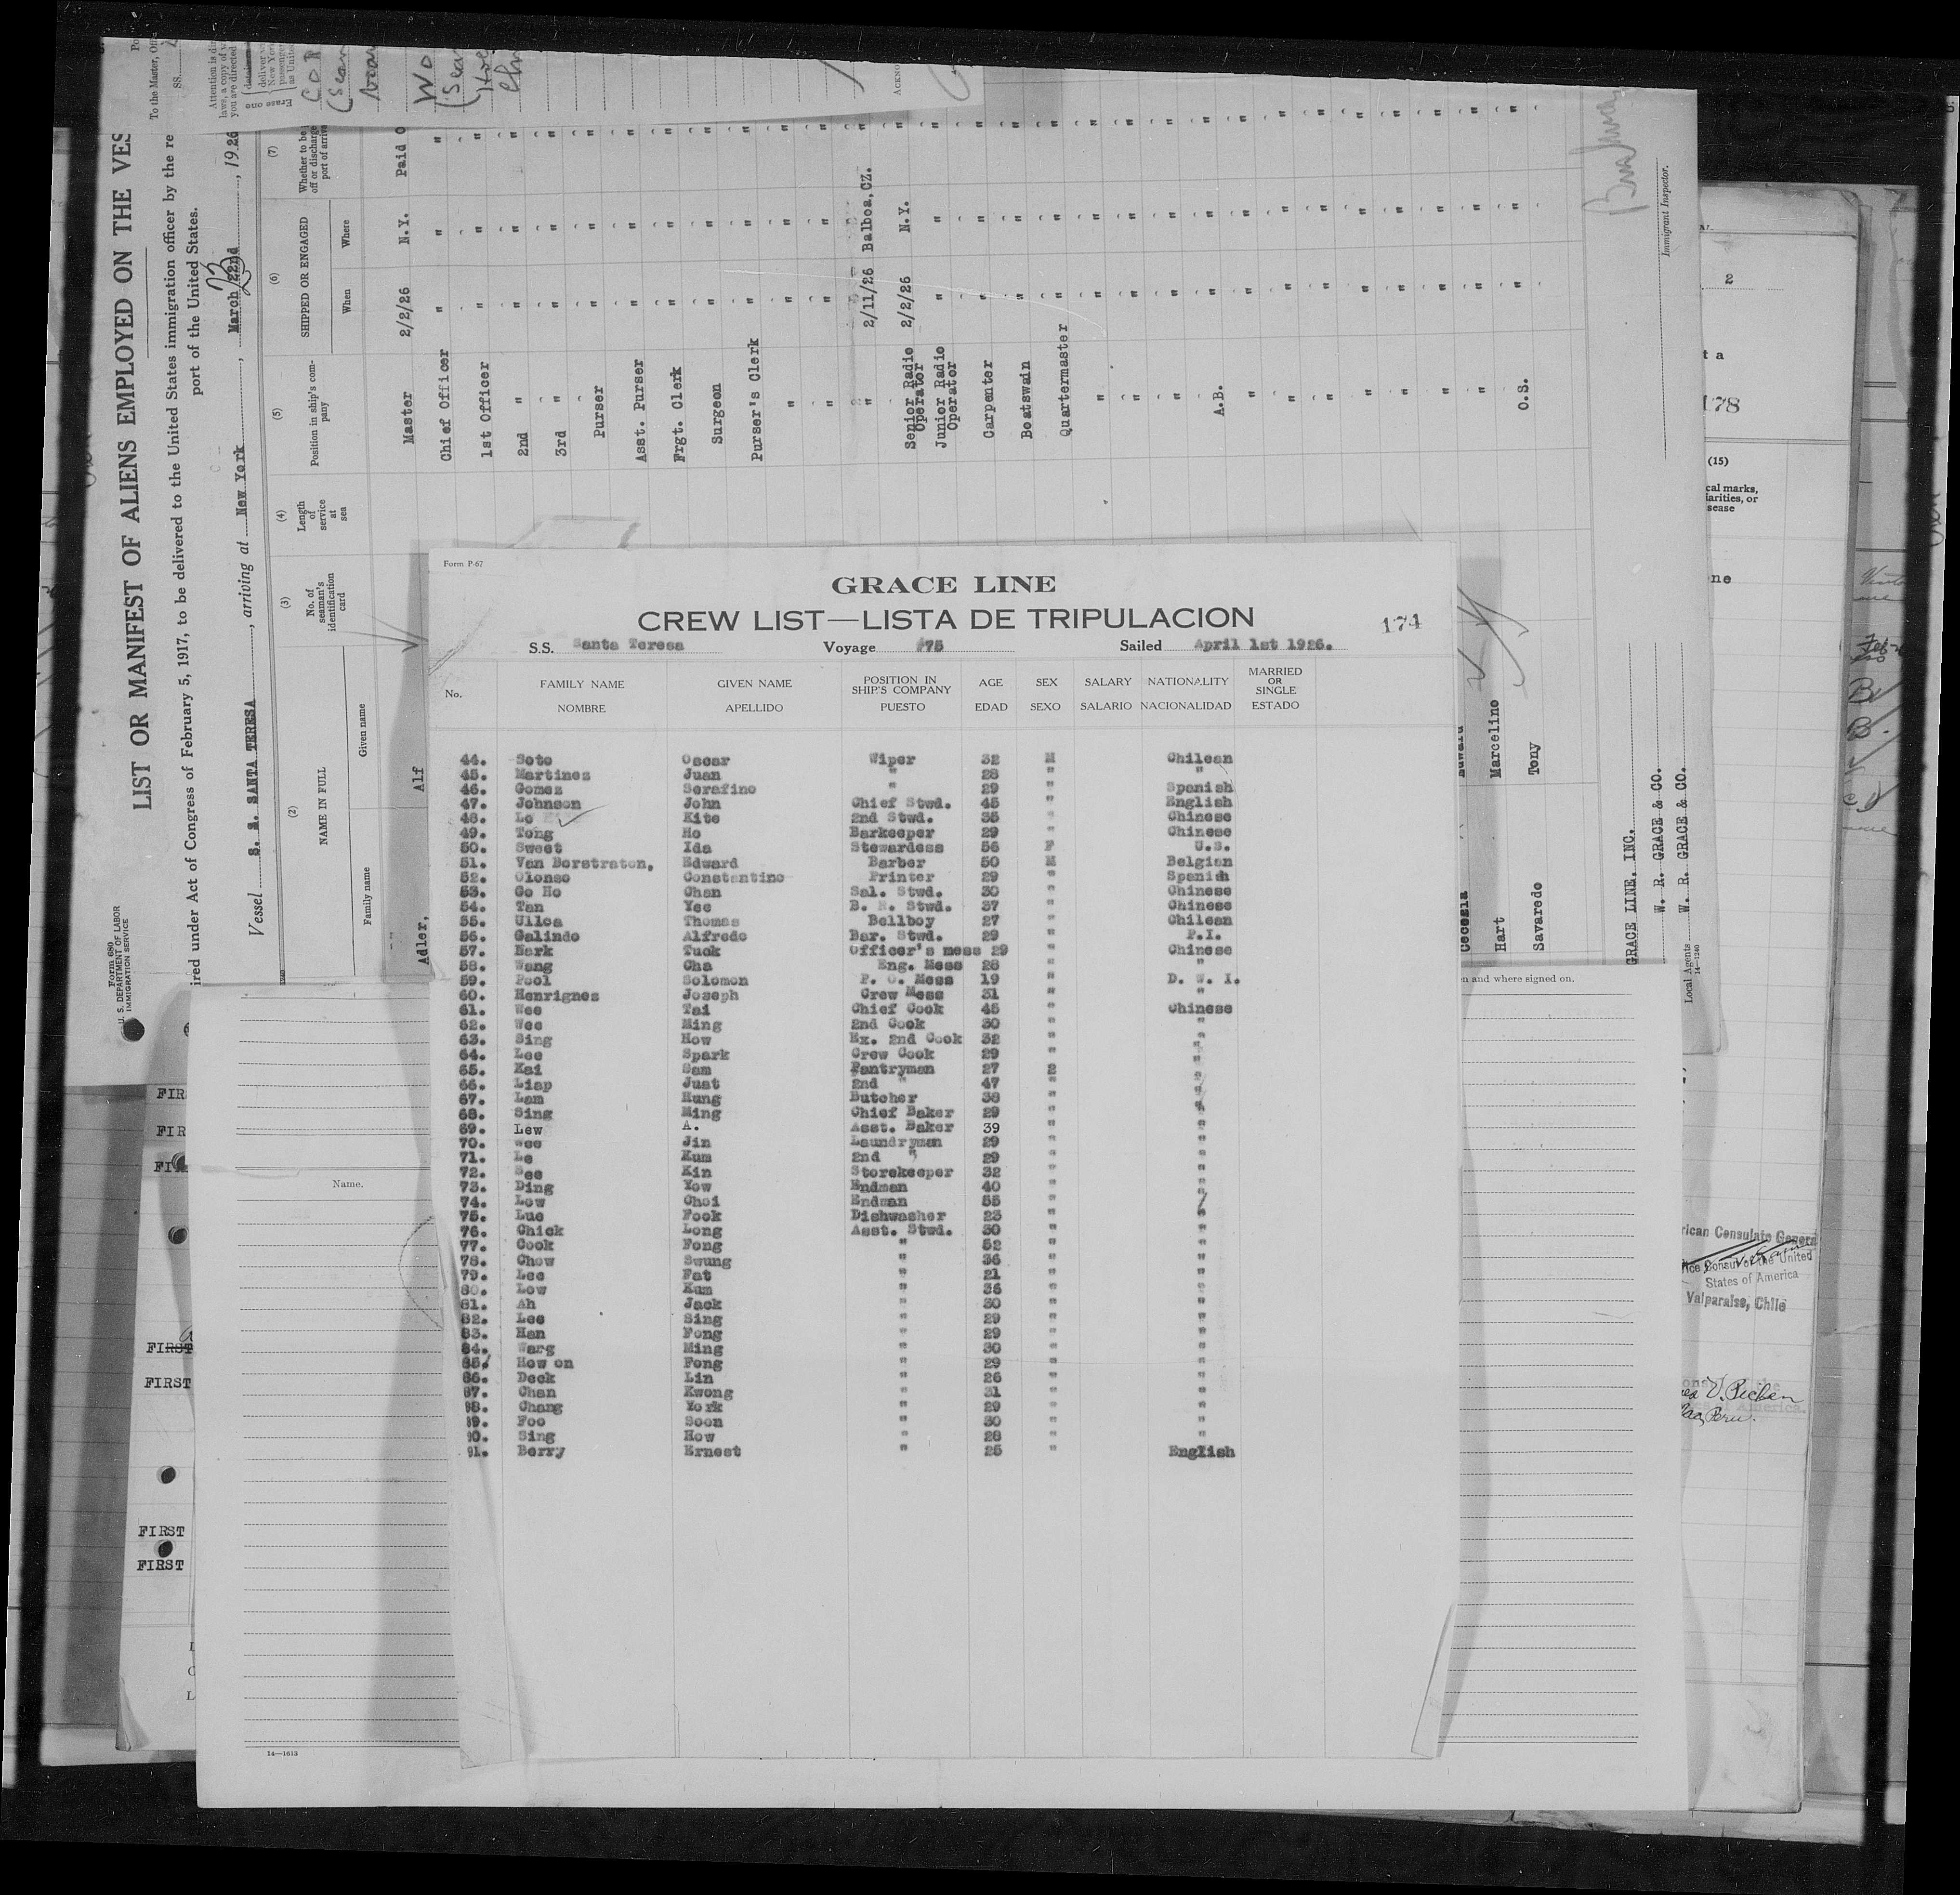 Form P-67
GRACE LINE
CREW LIST—LISTA DE TRIPULACION
174
S.S. Santa Teresa Voyage #75 Sailed April 1st 1926.
No. FAMILY NAME NOMBRE GIVEN NAME APELLIDO POSITION IN SHIP'S COMPANY PUESTO AGE EDAD SEX SEXO SALARY SALARIO NATIONALITY NACIONALIDAD MARRIED OR SINGLE ESTADO
44. Soto Oscar Wiper 32 M Chilean
45. Martines Juan " 28 " "
46. Gomez Serafino " 29 " Spanish
47. Johnson John Chief Stwd. 45 " English
48. Lo Kite 2nd Stwd. 35 " Chinese
49. Tong Ho Barkeeper 29 " Chinese
50. Sweet Ida Stewardess 56 F U.S.
51. Van Borstraton, Edward Barber 50 M Belgian
52. Olonso Constantino Printer 29 " Spanish
53. Go Ho Chan Sal. Stwd. 30 " Chinese
54. Tan Yee B. R. Stwd. 37 " Chinese
55. Ulloa Thomas Bellboy 27 " Chilean
56. Galindo Alfredo Bar. Stwd. 29 " P.I.
57. Bark Tuck Officer's mess 29 " Chinese
58. Wang Cha Eng. Mess 28 " "
59. Pool Solomon P. O. Mess 19 " D. W. I.
60. Henrignes Joseph Crew Mess 31 " "
61. Wee Tai Chief Cook 45 " Chinese
62. Wee Ming 2nd Cook 30 " "
63. Sing How Ex. 2nd Cook 32 " "
64. Lee Spark Crew Cook 29 " "
65. Kai Sam Pantryman 27 2 "
66. Liap Juat 2nd " 47 " "
67. Lam Hung Butcher 38 " "
68. Sing Ming Chief Baker 29 " "
69. Lew A. Asst. Baker 39 " "
70. Wee Jin Laundryman 29 " "
71. Le Kum 2nd " 29 " "
72. See Kin Storekeeper 32 " "
73. Ding Yow Endman 40 " "
74. Low Choi Endman 55 " "
75. Lue Fook Dishwasher 23 " "
76. Chick Long Asst. Stwd. 30 " "
77. Cook Fong " 52 " "
78. Chow Swung " 36 " "
79. Lee Fat " 21 " "
80. Low Kam " 35 " "
81. Ah Jack " 30 " "
82. Lee Sing " 29 " "
83. Han Fong " 29 " "
84. Warg Ming " 30 " "
85. How on Fong " 29 " "
86. Deck Lin " 26 " "
87. Chan Kwong " 31 " "
88. Chang York " 29 " "
89. Foo Soon " 30 " "
90. Sing How " 28 " "
91. Berry Ernest " 25 " English
Form 680
U. S. DEPARTMENT OF LABOR
IMMIGRATION SERVICE
LIST OR MANIFEST OF ALIENS EMPLOYED ON THE VES
ired under Act of Congress of February 5, 1917, to be delivered to the United States immigration officer by the re
port of the United States.
Vessel S. S. SANTA TERESA, arriving at New York, March 22nd 23, 1926
(2) NAME IN FULL
Family name Given name
(3) No. of seaman's identification card
(4) Length of service at sea
(5) Position in ship's company
(6) SHIPPED OR ENGAGED
When Where
(7) Whether to be off or discharge port of arriv
Adler, Alf Master 2/2/26 N.Y. Paid O
Chief Officer " " "
1st Officer " " "
2nd " " " "
3rd " " " "
Purser " " "
Asst. Purser " " "
Frgt. Clerk " " "
Surgeon " " "
Purser's Clerk " " "
" " " "
" " " "
" 2/11/26 Balboa, CZ. "
Senior Radio Operator 2/2/26 N.Y. "
Junior Radio Operator " " "
Carpenter " " "
Boatswain " " "
Quartermaster " " "
A.B.
Hart Marcelino
Savaredo Tony O.S.
GRACE LINE, INC.
W. R. GRACE & CO.
Local Agents W. R. GRACE & CO.
14—1240
Immigrant Inspector.
To the Master, Off
SS.
2
178
(15)
cal marks,
larities, or
sease
en and where signed on.
Name.
FIRST
FIRST
FIRST
FIRST
14—1613
rican Consulate General
Vice Consul of the United
States of America
Valparaiso, Chile